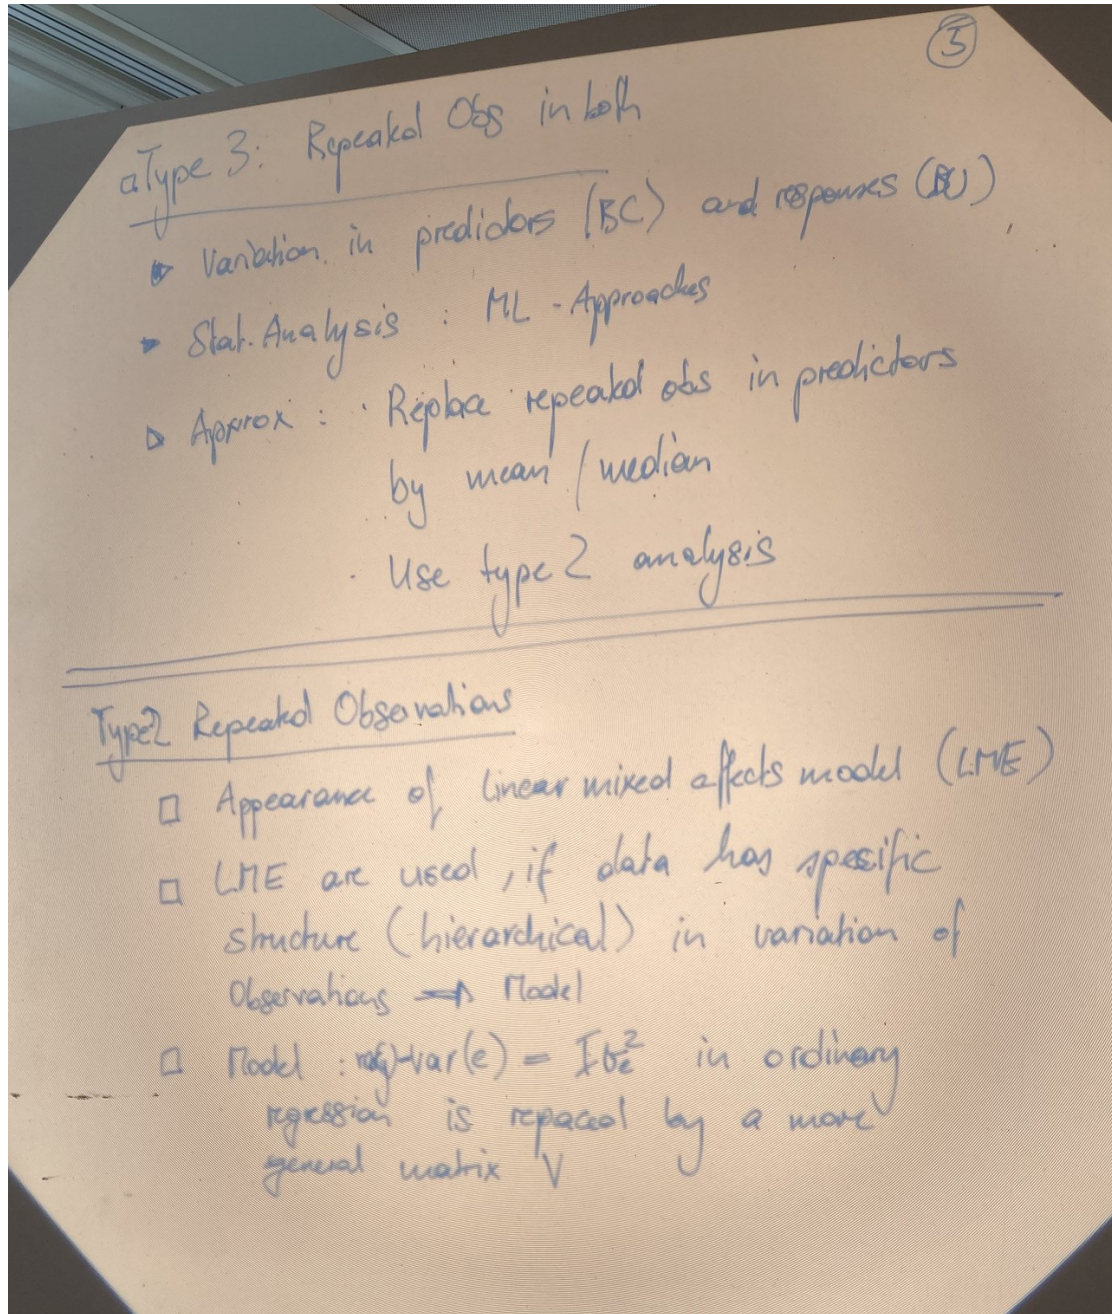 5
Type 3: Repeated Obs in both
Variation in predictors (BC) and responses (BW)
Stat. Analysis : ML - Approaches
Approx : · Replace repeated obs in predictors
by mean / median
· Use type 2 analysis
Type 2 Repeated Observations
Appearance of linear mixed effects model (LME)
LME are used, if data has spesific
structure (hierarchical) in variation of
Observations → Model
Model : var(e) = Iσe² in ordinary
regression is repaced by a more
general matrix V